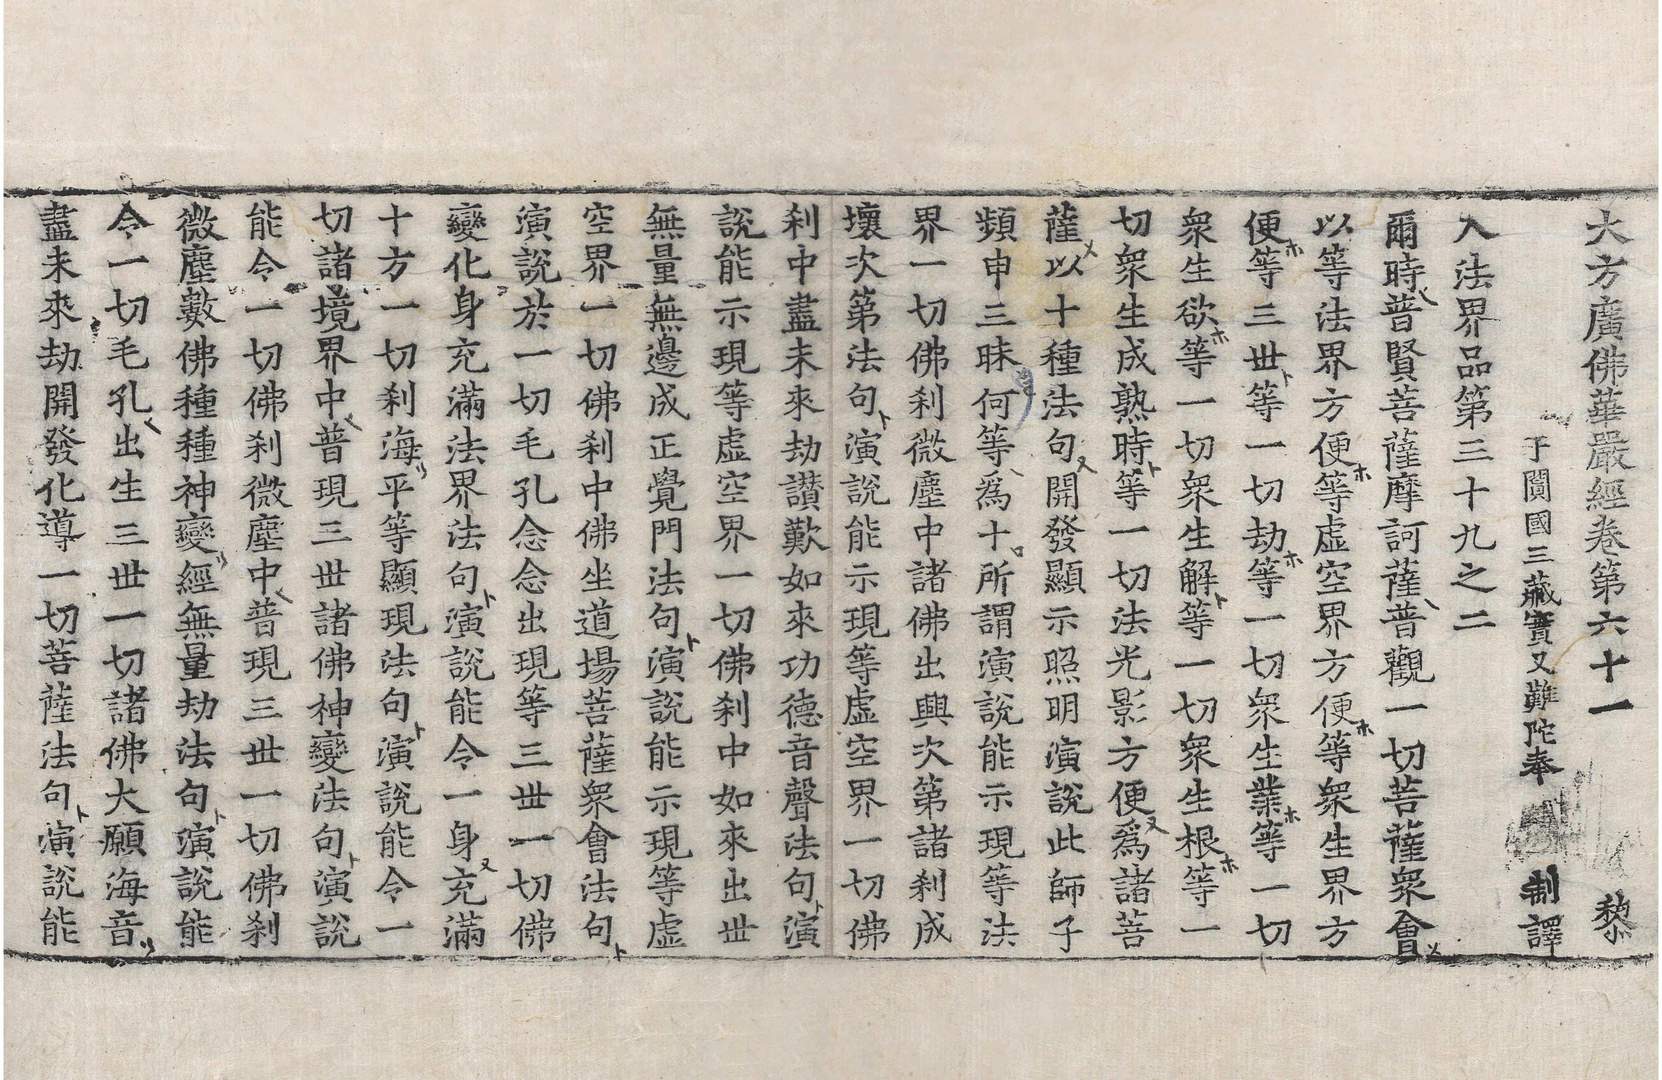 大方廣佛華嚴經卷第六十一 黎
于闐國三藏實叉難陀奉 制譯
入法界品第三十九之二
爾時普賢菩薩摩訶薩普觀一切菩薩衆會
以等法界方便等虛空界方便等衆生界方
便等三世等一切劫等一切衆生業等一切
衆生欲等一切衆生解等一切衆生根等一
切衆生成熟時等一切法光影方便爲諸菩
薩以十種法句開發顯示照明演說此師子
頻申三昧何等爲十所謂演說能示現等法
界一切佛刹微塵中諸佛出興次第諸刹成
壞次第法句演說能示現等虛空界一切佛
刹中盡未來劫讃歎如來功德音聲法句演
說能示現等虛空界一切佛刹中如來出世
無量無邊成正覺門法句演說能示現等虛
空界一切佛刹中佛坐道場菩薩衆會法句
演說於一切毛孔念念出現等三世一切佛
變化身充滿法界法句演說能令一身充滿
十方一切刹海平等顯現法句演說能令一
切諸境界中普現三世諸佛神變法句演說
能令一切佛刹微塵中普現三世一切佛刹
微塵數佛種種神變經無量劫法句演說能
令一切毛孔出生三世一切諸佛大願海音
盡未來劫開發化導一切菩薩法句演說能